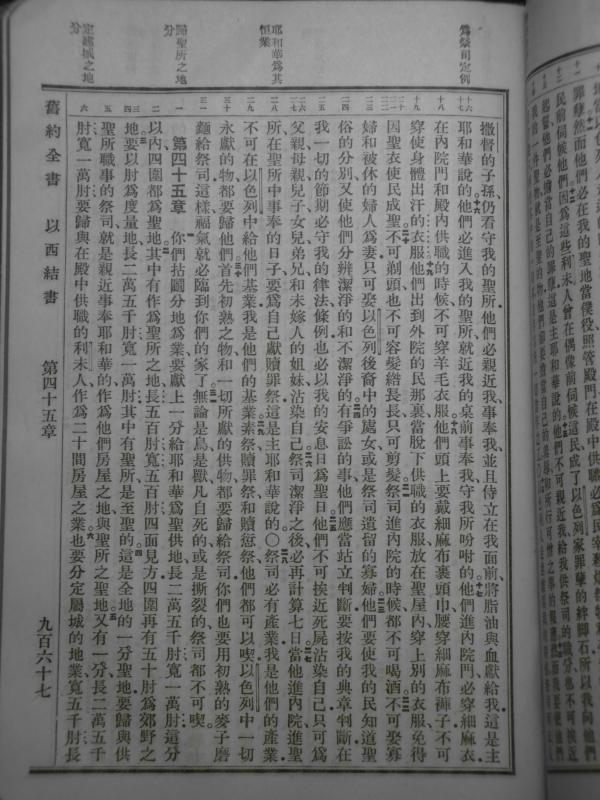 罪孽然而他們必在我的聖地當僕役照管殿門在殿中供職必為民宰殺燔祭牲
民前伺候他們因為這些利未人曾在偶像前伺候這民成了以色列家罪孽的絆腳石所以我向他們
起誓他們必擔當自己的罪孽這是主耶和華說的他們不可親近我給我供祭司的職分也不可挨近
為祭司定例
耶和華為其
恆業
歸聖所之地
分
定建城之地
分
撒督的子孫仍看守我的聖所他們必親近我事奉我並且侍立在我面前將脂油與血獻給我這是主
耶和華說的他們必進入我的聖所就近我的桌前事奉我守我所吩咐的他們進內院門必穿細麻衣
在內院門和殿內供職的時候不可穿羊毛衣服他們頭上要戴細麻布裹頭巾腰穿細麻布褲子不可
穿使身體出汗的衣服他們出到外院的民那裏當脫下供職的衣服放在聖屋內穿上別的衣服免得
因聖衣使民成聖不可剃頭也不可容髮綹長長只可剪髮祭司進內院的時候都不可喝酒不可娶寡
婦和被休的婦人為妻只可娶以色列後裔中的處女或是祭司遺留的寡婦他們要使我的民知道聖
俗的分別又使他們分辨潔淨的和不潔淨的有爭訟的事他們應當站立判斷要按我的典章判斷在
我一切的節期必守我的律法條例也必以我的安息日為聖日他們不可挨近死屍沾染自己只可為
父親母親兒子女兒弟兄和未嫁人的姐妹沾染自己祭司潔淨之後必再計算七日當他進內院進聖
所在聖所中事奉的日子要為自己獻贖罪祭這是主耶和華說的〇祭司必有產業我是他們的產業
不可在以色列中給他們基業我是他們的基業素祭贖罪祭和贖愆祭他們都可以喫以色列中一切
永獻的物都要歸他們首先初熟之物和一切所獻的供物都要歸給祭司你們也要用初熟的麥子磨
麵給祭司這樣福氣就必臨到你們的家了無論是鳥是獸凡自死的或是撕裂的祭司都不可喫
第四十五章　你們拈鬮分地為業要獻上一分給耶和華為聖供地長二萬五千肘寬一萬肘這分
以內四圍都為聖地其中有作為聖所之地長五百肘寬五百肘四面見方四圍再有五十肘為郊野之
地要以肘為度量地長二萬五千肘寬一萬肘其中有聖所是至聖的這是全地的一分聖地要歸與供
聖所職事的祭司就是親近事奉耶和華的作為他們房屋之地與聖所之聖地又有一分長二萬五千
肘寬一萬肘要歸與在殿中供職的利未人作為二十間房屋之業也要分定屬城的地業寬五千肘長
舊約全書　以西結書　第四十五章　九百六十七